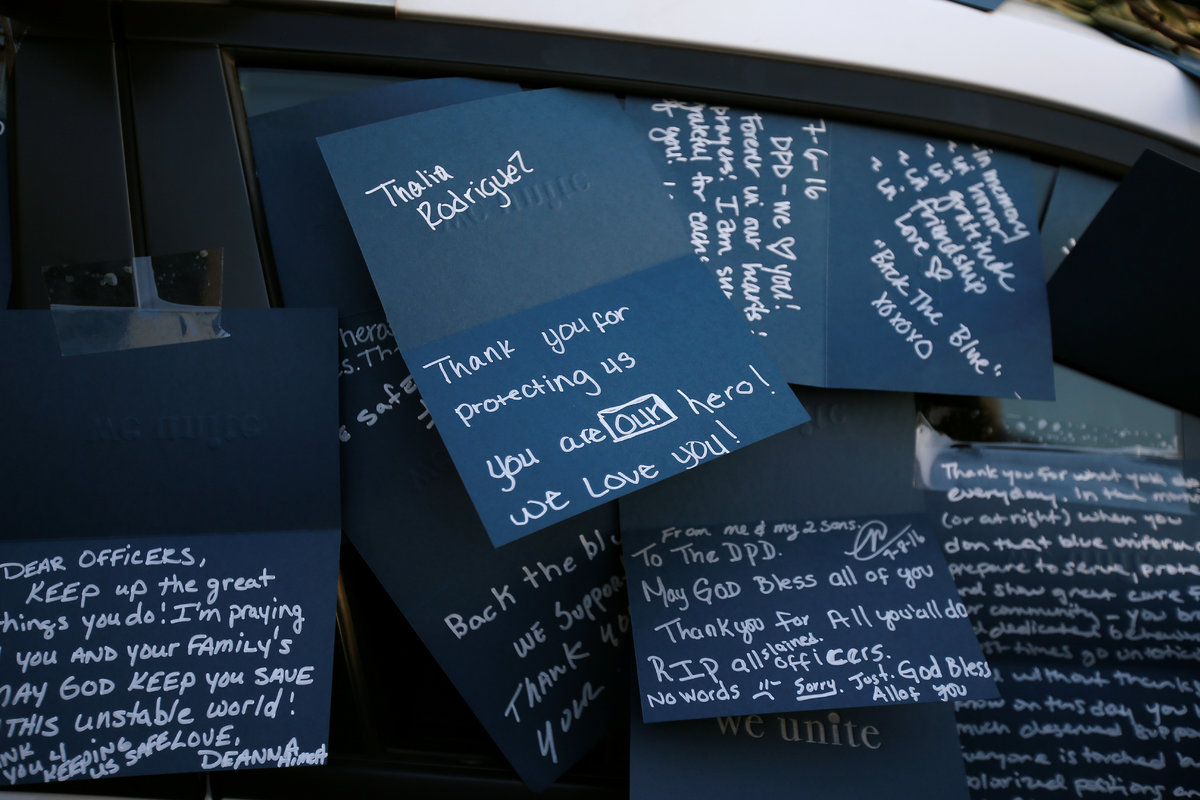 Thalia
Rodriguez
we unite
Thank you for
protecting us
you are our hero!
we Love you!
7-6-16
DPD - we ♡ you!
Forever in our hearts
prayers! I am
for each
of you!
~ in memory
~ in honor
~ in gratitude
~ in friendship
~ in Love ♡
"Back The Blue"
xoxoxo
heros
safe
we unite
DEAR OFFICERS,
KEEP up the great
things you do! I'm praying
you AND your FAMILY'S
MAY GOD KEEP you SAVE
THIS unstable world!
you 4 KEEPING
us SAFE LOVE,
DEANNA
Back the blu
we Suppor
THANK YO
your
From me & my 2 sons.
7-8-16
To The DPD.
May GOD Bless all of you
Thankyou for All you'all do
RIP all slained officers.
No words Sorry. Just. God Bless
All of you
we unite
Thank you for what you do
everyday. In the
(or at night) when you
don that blue uniform
prepare to serve, prote
and show great care f
community - you
dedicated
times go
without thanks
on this day you
much deserved
everyone is touched b
polarized positions an